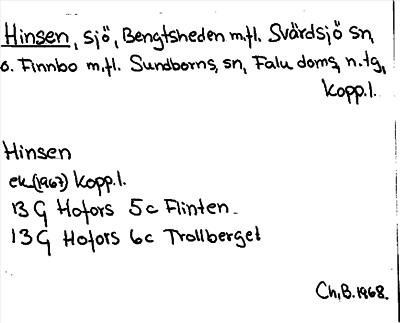 Hinsen, sjö, Bengtsheden m.fl. Svärdsjö sn,
o. Finnbo m.fl. Sundborns, sn, Falu doms, n. tg,
Kopp.l.
Hinsen
ek(1967) Kopp.l.
13 G Hofors 5c Flinten
13 G Hofors 6c Trollberget
Ch, B. 1968.